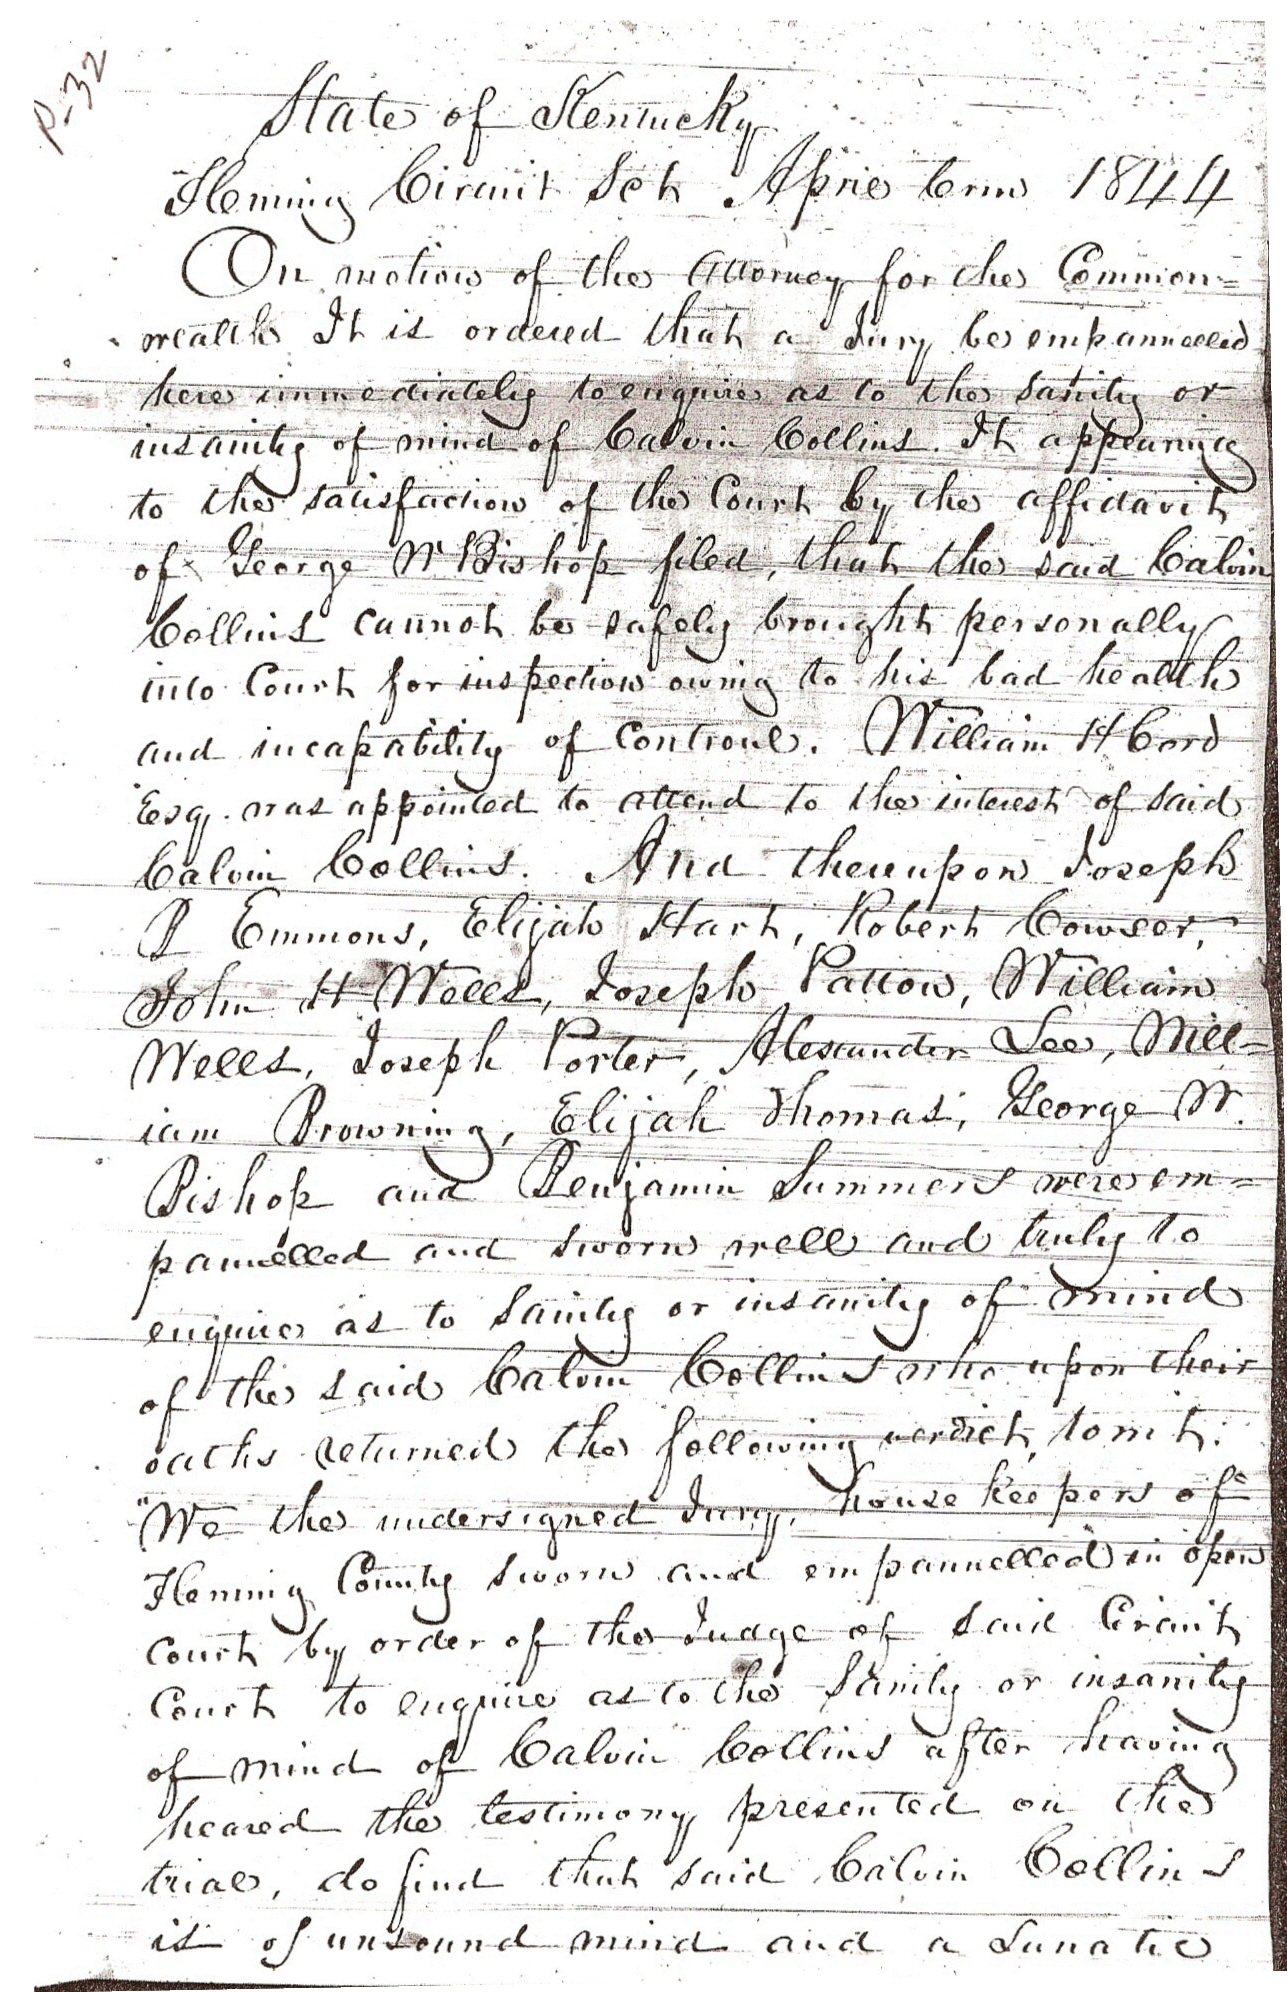 P-32
State of Kentucky
Fleming Circuit Sct April Term 1844
On motion of the Attorney for the Common=
wealth It is ordered that a Jury be empannelled
here immediately to enquire as to the sanity or
insanity of mind of Calvin Collins. It appearing
to the satisfaction of the Court by the affidavit
of George W Bishop filed, that the said Calvin
Collins cannot be safely brought personally
into Court for inspection owing to his bad health
and incapability of Controul. William H Cord
Esq. was appointed to attend to the interest of said
Calvin Collins. And thereupon Joseph
R Emmons, Elijah Hart, Robert Cowser,
John H Wells, Joseph Patton, William
Wells, Joseph Porter, Alexander Lee, Will=
iam Browning, Elijah Thomas, George W.
Bishop and Benjamin Summers were em=
pannelled and sworn well and truly to
enquire as to Sanity or insanity of mind
of the said Calvin Collins who upon their
oaths returned the following verdict, towit.
"We the undersigned Jury, house keepers of
Fleming County sworn and empannelled in open
Court by order of the Judge of said Circuit
Court to enquire as to the Sanity or insanity
of mind of Calvin Collins after having
heared the testimony presented on the
trial, do find that said Calvin Collins
is of unsound mind and a Lunatic